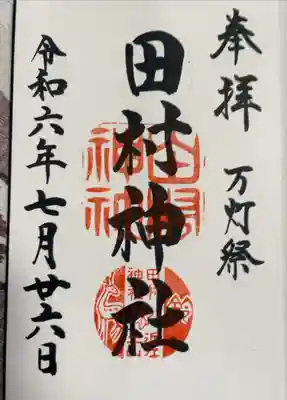 奉拝　万灯祭
田村神社
令和六年七月廿六日